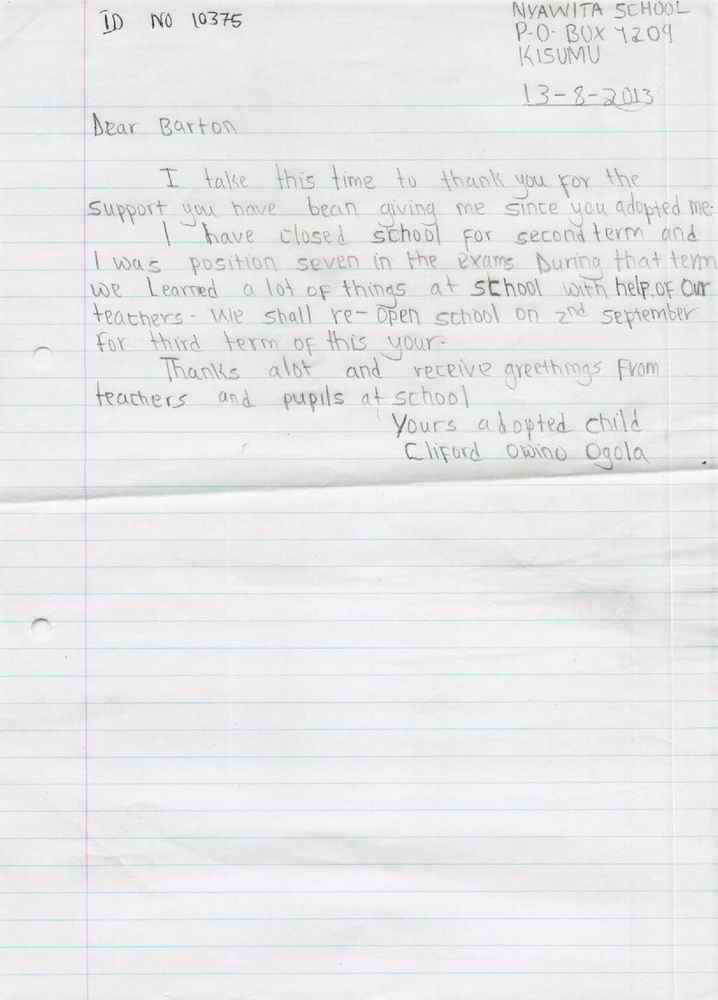 ID NO 10375
NYAWITA SCHOOL
P.O. BOX 4204
KISUMU
13-8-2013
Dear Barton
I take this time to thank you for the
support you have bean giving me since you adopted me.
I have closed school for second term and
I was position seven in the exams During that term
we Learned a lot of things at school with help of our
teachers. We shall re-open school on 2nd september
for third term of this your.
Thanks alot and receive greethings from
teachers and pupils at school
Yours adopted child
Cliford Owino Ogola